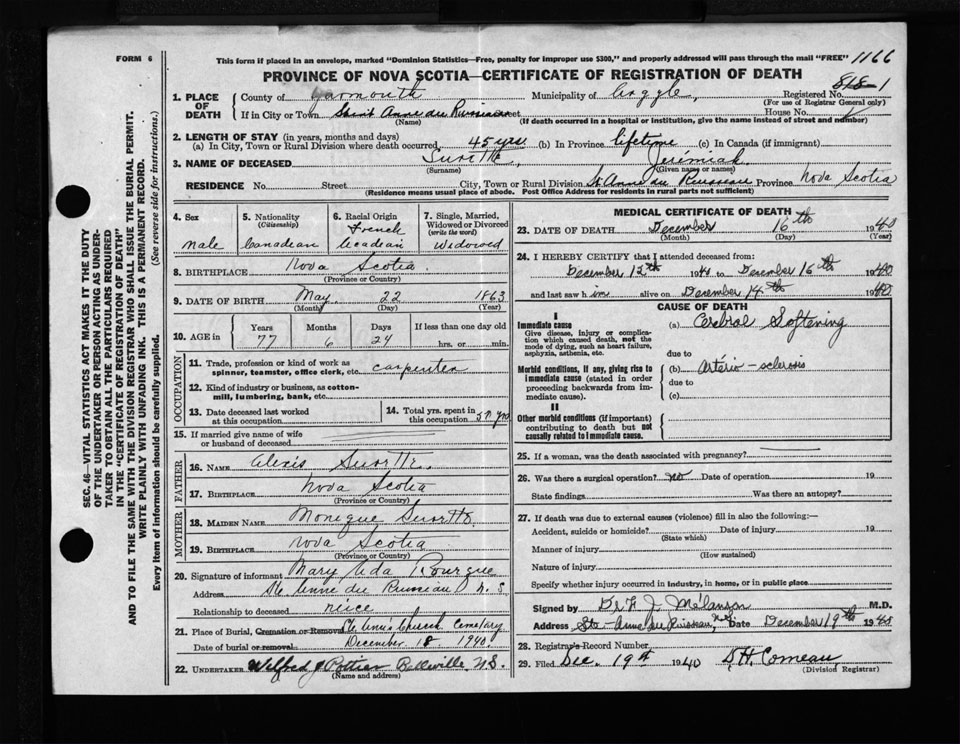 FORM 6
This form if placed in an envelope, marked "Dominion Statistics—Free, penalty for improper use $300," and properly addressed will pass through the mail "FREE" 1166
PROVINCE OF NOVA SCOTIA—CERTIFICATE OF REGISTRATION OF DEATH
1. PLACE OF DEATH
County of Yarmouth Municipality of Argyle, Registered No.
(For use of Registrar General only)
If in City or Town Saint Anne du Ruisseau Street House No.
(Name) (If death occurred in a hospital or institution, give the name instead of street and number)
2. LENGTH OF STAY (in years, months and days)
(a) In City, Town or Rural Division where death occurred 45 yrs. (b) In Province lifetime (c) In Canada (if immigrant)
3. NAME OF DECEASED Surette, Jeremiah
(Surname) (Given name or names)
RESIDENCE No. Street City, Town or Rural Division St. Anne du Ruisseau Province Nova Scotia
(Residence means usual place of abode. Post Office Address for residents in rural parts not sufficient)
4. Sex
male
5. Nationality
(Citizenship)
Canadian
6. Racial Origin
French
Acadian
7. Single, Married, Widowed or Divorced
(write the word)
Widowed
8. BIRTHPLACE Nova Scotia
(Province or Country)
9. DATE OF BIRTH May 22 1863
(Month) (Day) (Year)
10. AGE in
Years Months Days If less than one day old
77 6 24 hrs. or min.
OCCUPATION
11. Trade, profession or kind of work as
spinner, teamster, office clerk, etc. carpenter
12. Kind of industry or business, as cotton-
mill, lumbering, bank, etc.
13. Date deceased last worked
at this occupation
14. Total yrs. spent in
this occupation
15. If married give name of wife
or husband of deceased
FATHER
16. NAME Alexis Surette
17. BIRTHPLACE Nova Scotia
(Province or Country)
MOTHER
18. MAIDEN NAME Monique Surette
19. BIRTHPLACE Nova Scotia
(Province or Country)
20. Signature of informant Mary Ada Bourque
Address Ste Anne du Ruisseau N. S.
Relationship to deceased niece
21. Place of Burial, Cremation or Removal Ste Ann's Church Cemetary
Date of burial or removal December 18 1940.
22. UNDERTAKER Wilfred J Pottier Belleville N.S.
(Name and address)
MEDICAL CERTIFICATE OF DEATH
23. DATE OF DEATH December 16th 1940
(Month) (Day) (Year)
24. I HEREBY CERTIFY that I attended deceased from:
December 12th 1940 to December 16th 1940
and last saw him alive on December 14th 1940
CAUSE OF DEATH
I
Immediate cause
Give disease, injury or complica-
tion which caused death, not the
mode of dying, such as heart failure,
asphyxia, asthenia, etc.
(a) Cerebral Softening
due to
Morbid conditions, if any, giving rise to
immediate cause (stated in order
proceeding backwards from im-
mediate cause).
(b) Artério-sclerosis
due to
(c)
II
Other morbid conditions (if important)
contributing to death but not
causally related to immediate cause.
25. If a woman, was the death associated with pregnancy?
26. Was there a surgical operation? no Date of operation 19
State findings Was there an autopsy?
27. If death was due to external causes (violence) fill in also the following:—
Accident, suicide or homicide? Date of injury 19
(State which)
Manner of injury
(How sustained)
Nature of injury
Specify whether injury occurred in industry, in home, or in public place
Signed by Dr F. J. Melanson M.D.
Address Ste-Anne du Ruisseau, N.S. Date December 19th 1940
28. Registrar's Record Number
29. Filed Dec. 19th 1940 D.H. Comeau
(Division Registrar)
SEC. 46—VITAL STATISTICS ACT MAKES IT THE DUTY
OF THE UNDERTAKER OR PERSON ACTING AS UNDER-
TAKER TO OBTAIN ALL THE PARTICULARS REQUIRED
IN THE "CERTIFICATE OF REGISTRATION OF DEATH"
AND TO FILE THE SAME WITH THE DIVISION REGISTRAR WHO SHALL ISSUE THE BURIAL PERMIT.
WRITE PLAINLY WITH UNFADING INK. THIS IS A PERMANENT RECORD.
Every item of information should be carefully supplied. (See reverse side for instructions.)